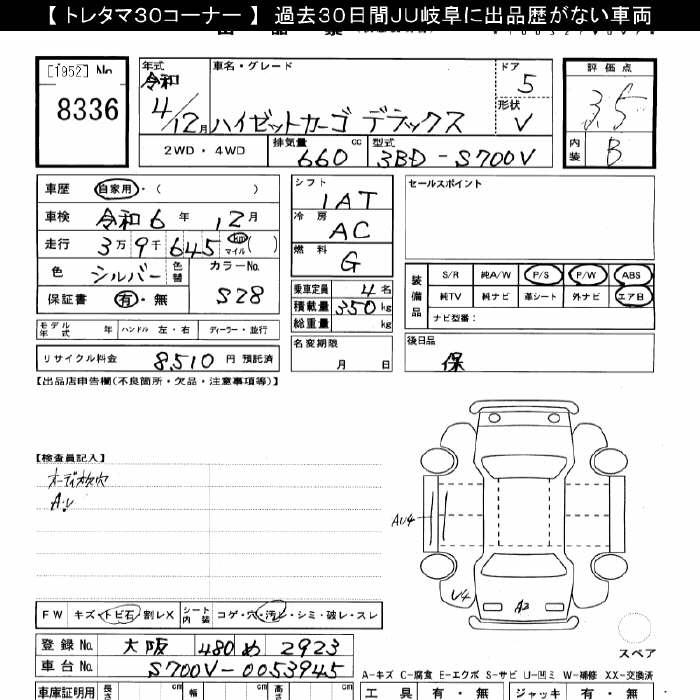 【 トレタマ30コーナー 】 過去30日間JU岐阜に出品歴がない車両
[1952] No
8336
年式
令和
4/12月
車名・グレード
ハイゼットカーゴ デラックス
ドア
5
形状
V
評価点
3.5
内装
B
2WD・4WD
排気量
660 cc
型式
3BD-S700V
車歴 自家用・( )
車検 令和 6 年 12 月
走行 3万 9千 645 km マイル ( )
色 シルバー 色替
カラーNo. S28
保証書 有・無
モデル年式 年 ハンドル 左・右 ディーラー・並行
リサイクル料金 8,510 円 預託済
シフト
IAT
冷房
AC
燃料
G
乗車定員 4 名
積載量 350 kg
総重量 kg
名変期限
月 日
セールスポイント
装備品
S/R 純A/W P/S P/W ABS
純TV 純ナビ 革シート 外ナビ エアB
ナビ型番:
後日品
保
【出品店申告欄(不良箇所・欠品・注意事項等)】
【検査員記入】
オーディオ欠穴
A・U
AU4
U4
A2
スペア
FW キズ・トビ石・割レX シート内装 コゲ・穴・汚レ・シミ・破レ・スレ
登録No. 大阪 480 め 2923
車台No. S700V-0053945
A-キズ C-腐食 E-エクボ S-サビ U-凹ミ W-補修 XX-交換済
車庫証明用 長さ cm 幅 cm 高さ cm
工具 有・無 ジャッキ 有・無